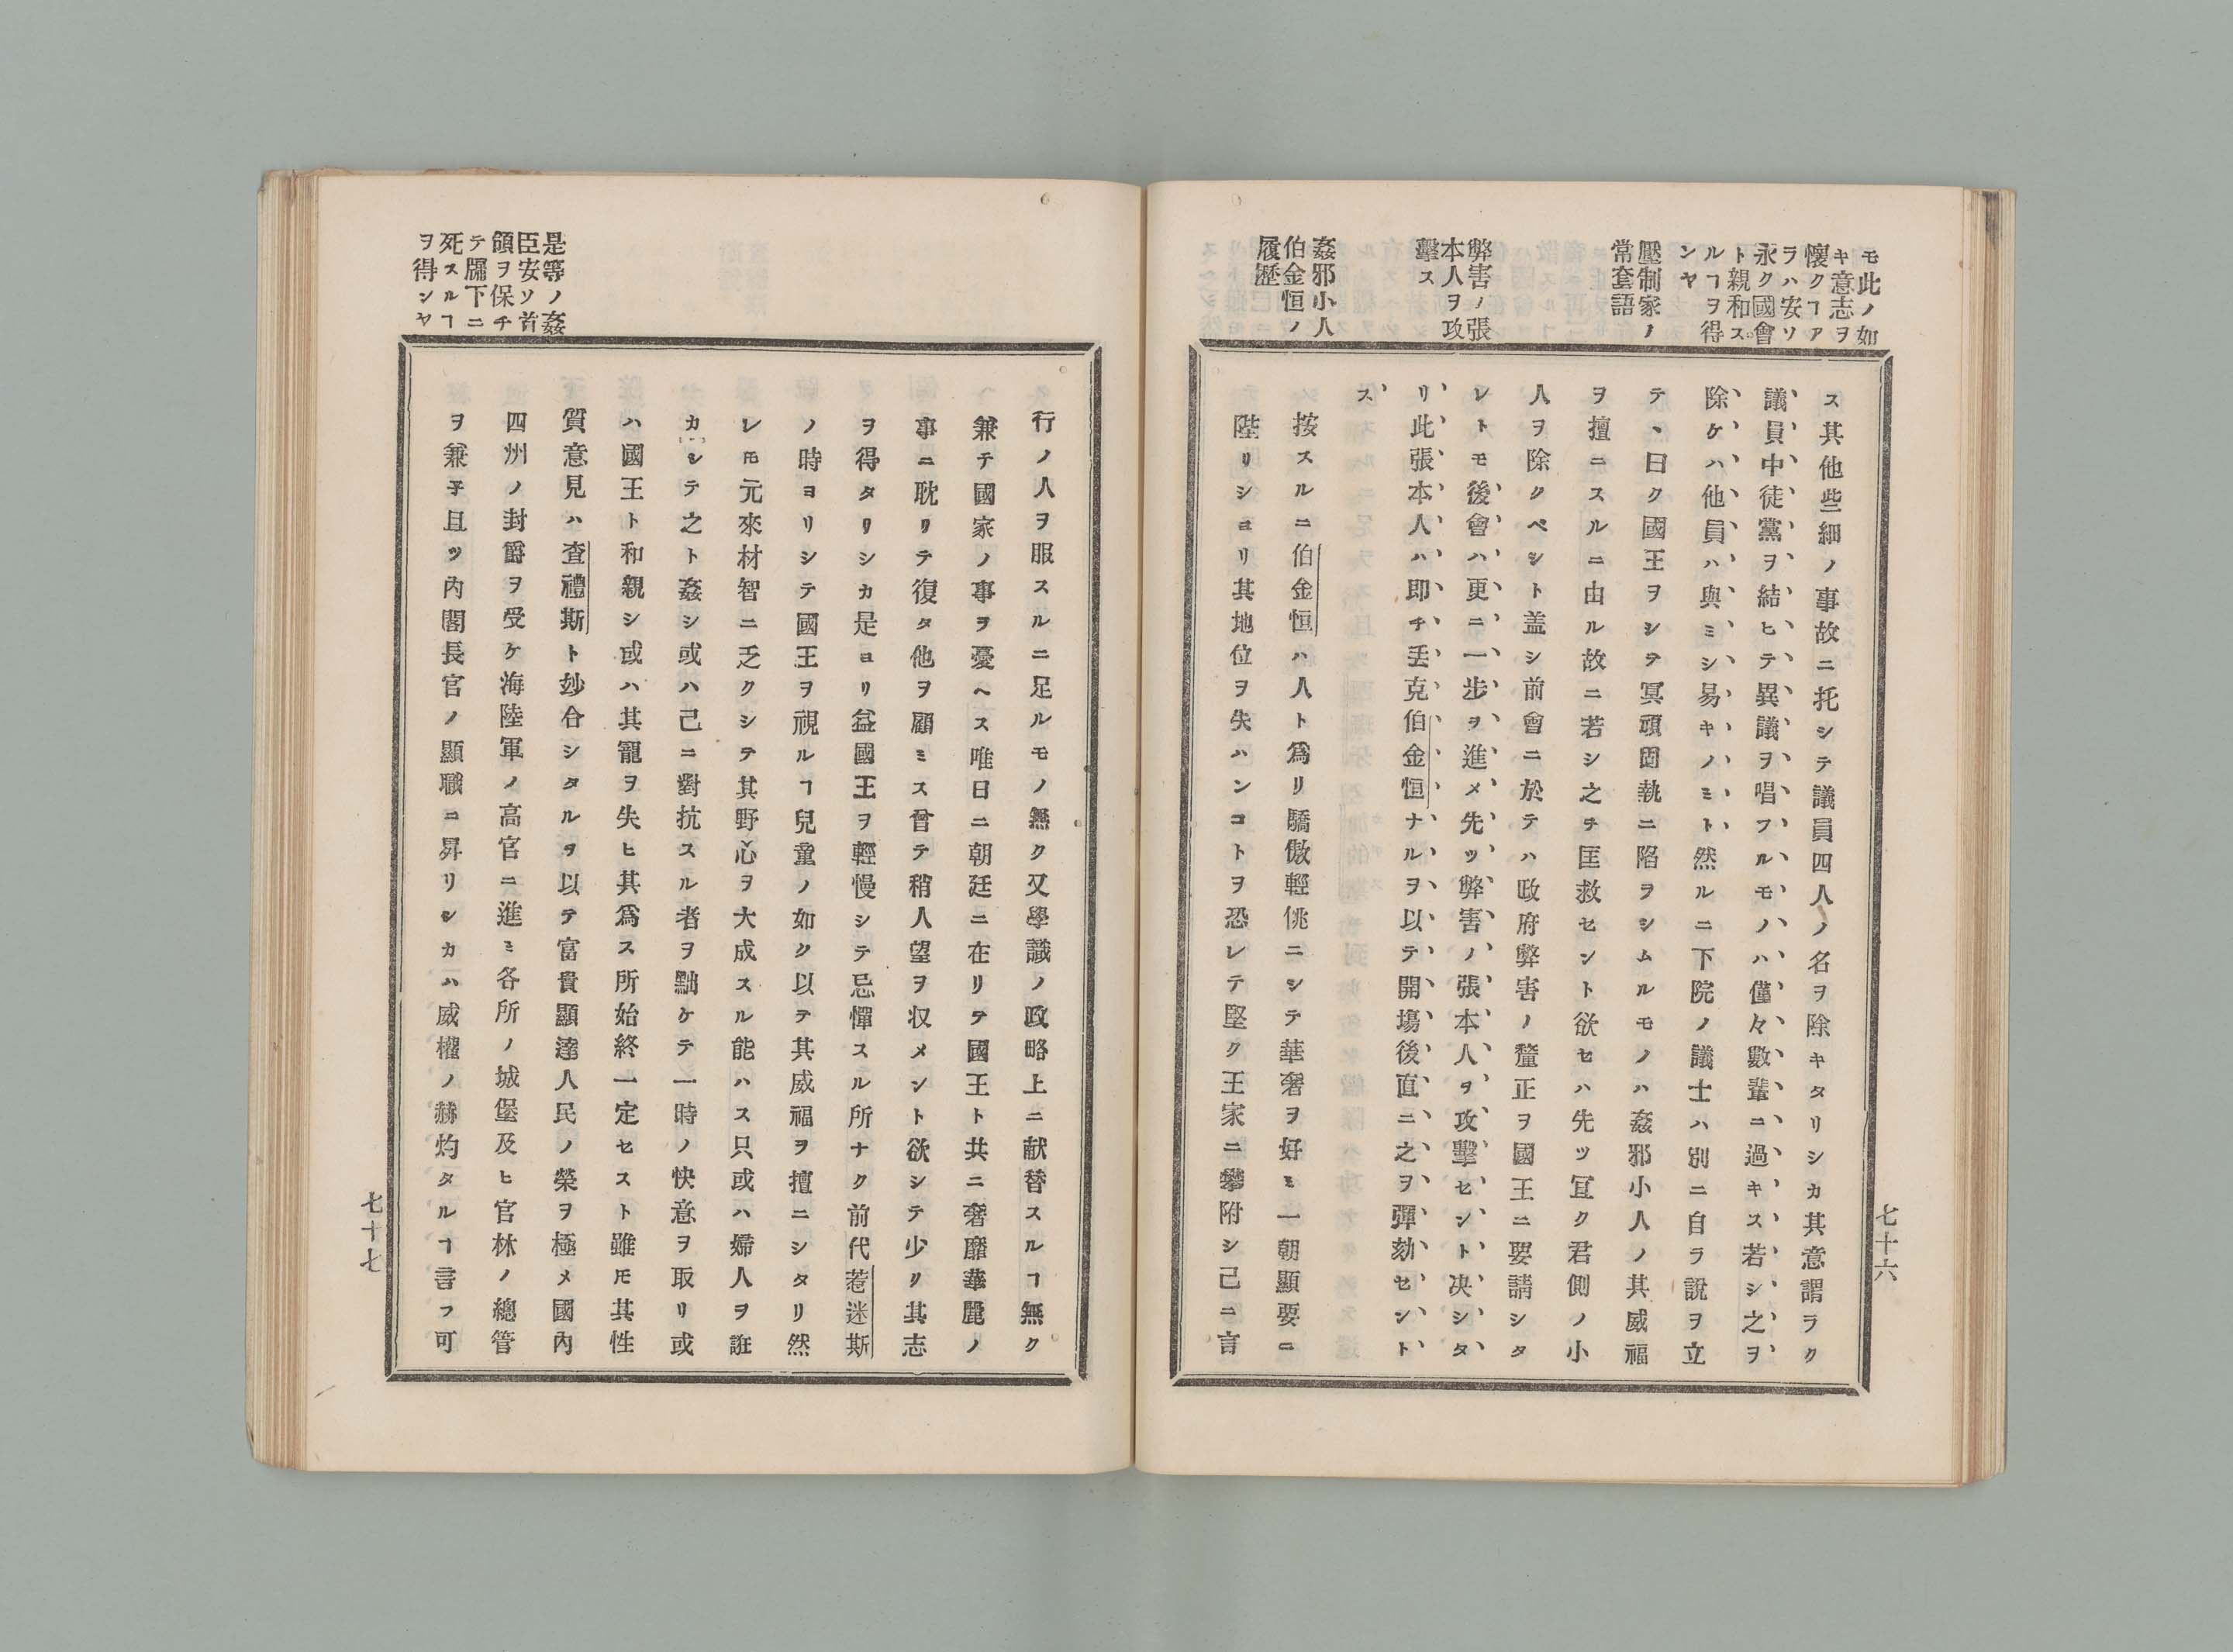 モ此ノ如
キ意志ヲ
懷クヿア
ラハ安ソ
永ク國會
ト親和ス
ルヿヲ得
ンヤ
壓制家ノ
常套語
弊害ノ張
本人ヲ攻
擊ス
姦邪小人
伯金恒ノ
履歷
ス其他些細ノ事故ニ托シテ議員四人ノ名ヲ除キタリシカ其意謂ラク
議員中徒黨ヲ結ヒテ異議ヲ唱フルモノハ僅々數輩ニ過キス若シ之ヲ
除ケハ他員ハ與ミシ易キノミト然ルニ下院ノ議士ハ別ニ自ラ說ヲ立
テヽ曰ク國王ヲシテ冥頑固執ニ陷ヲシムルモノハ姦邪小人ノ其威福
ヲ擅ニスルニ由ル故ニ若シ之ヲ匡救セント欲セハ先ッ宜ク君側ノ小
人ヲ除クベシト盖シ前會ニ於テハ政府弊害ノ釐正ヲ國王ニ要請シタ
レトモ後會ハ更ニ一步ヲ進メ先ッ弊害ノ張本人ヲ攻擊セント决シタ
リ此張本人ハ即チ丢克伯金恒ナルヲ以テ開塲後直ニ之ヲ彈劾セント
ス
按スルニ伯金恒ハ人ト爲リ驕傲輕佻ニシテ華奢ヲ好ミ一朝顯要ニ
陞リシヨリ其地位ヲ失ハンコトヲ恐レテ堅ク王家ニ攀附シ己ニ言
七十六
是等ノ姦
臣安ソ首
領ヲ保チ
テ牖下ニ
死スルヿ
ヲ得ンヤ
行ノ人ヲ服スルニ足ルモノ無ク又學識ノ政略上ニ献替スルヿ無ク
兼テ國家ノ事ヲ憂ヘス唯日ニ朝廷ニ在リテ國王ト共ニ奢靡華麗ノ
事ニ耽リテ復タ他ヲ顧ミス曾テ稍人望ヲ収メント欲シテ少リ其志
ヲ得タリシカ是ヨリ益國王ヲ輕慢シテ忌憚スル所ナク前代惹迷斯
ノ時ヨリシテ國王ヲ視ルヿ兒童ノ如ク以テ其威福ヲ擅ニシタリ然
レ𪜈元來材智ニ乏クシテ其野心ヲ大成スル能ハス只或ハ婦人ヲ誑
カシテ之ト姦シ或ハ己ニ對抗スル者ヲ黜ケテ一時ノ快意ヲ取リ或
ハ國王ト和親シ或ハ其寵ヲ失ヒ其爲ス所始終一定セスト雖𪜈其性
質意見ハ査禮斯ト玅合シタルヲ以テ富貴顯達人民ノ榮ヲ極メ國內
四州ノ封爵ヲ受ケ海陸軍ノ高官ニ進ミ各所ノ城堡及ヒ官林ノ總管
ヲ兼子且ッ內閣長官ノ顯職ニ昇リシカハ威權ノ赫灼タルヿ言フ可
七十七